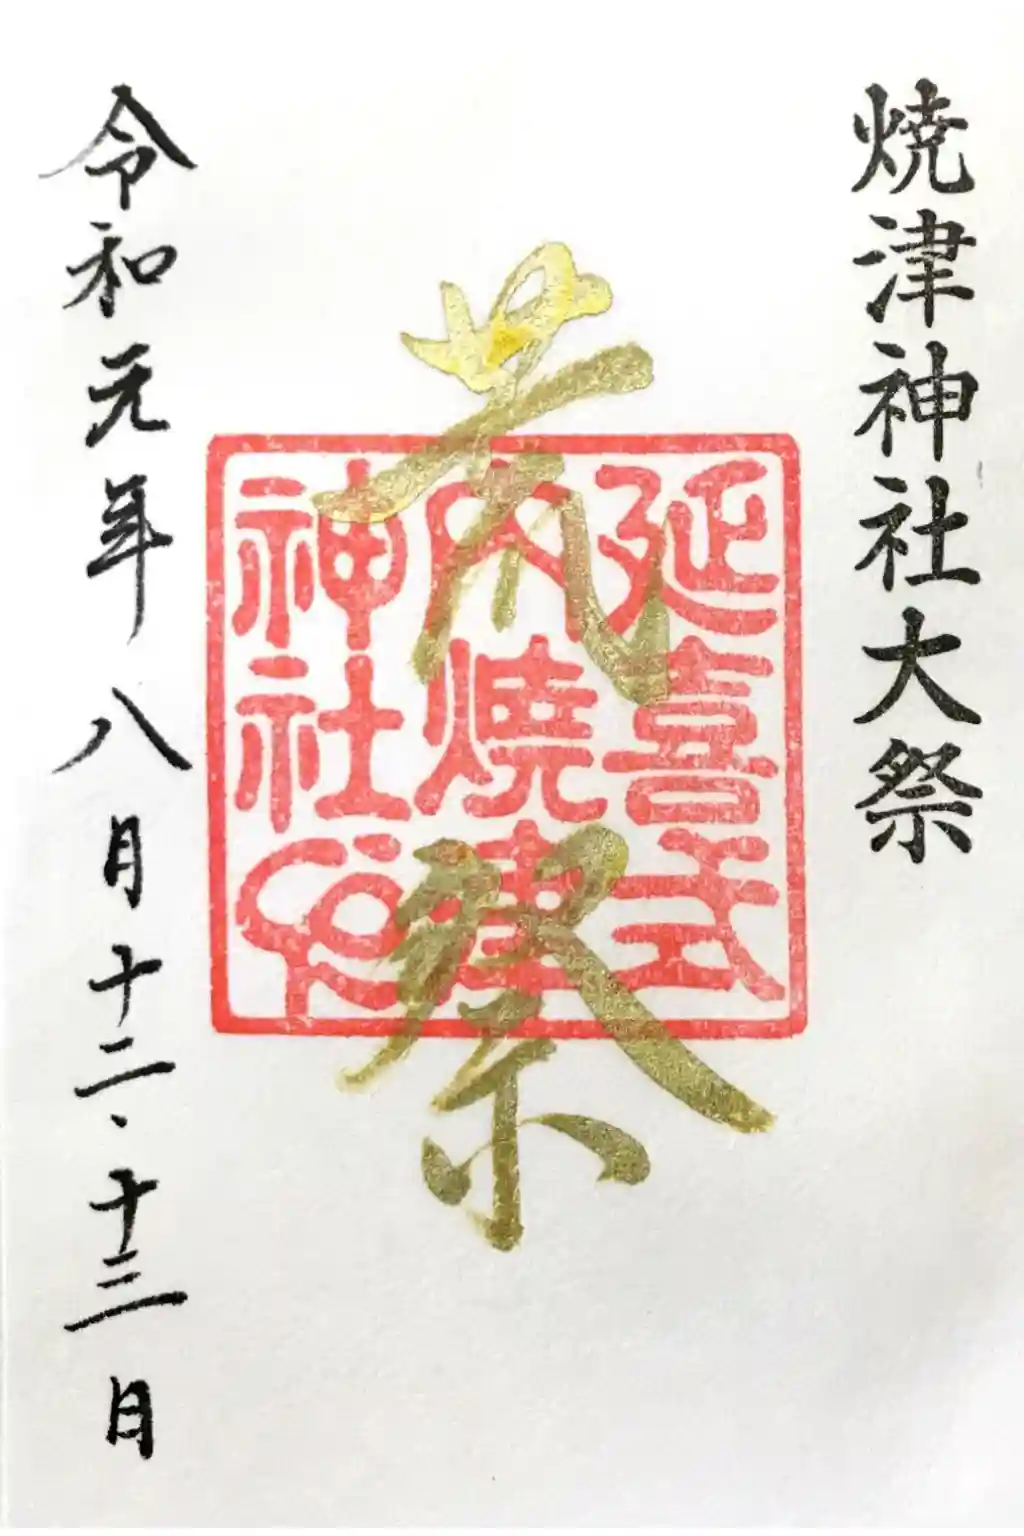 焼津神社大祭
荒祭
延喜式
内焼津
神社印
令和元年八月十二、十三日